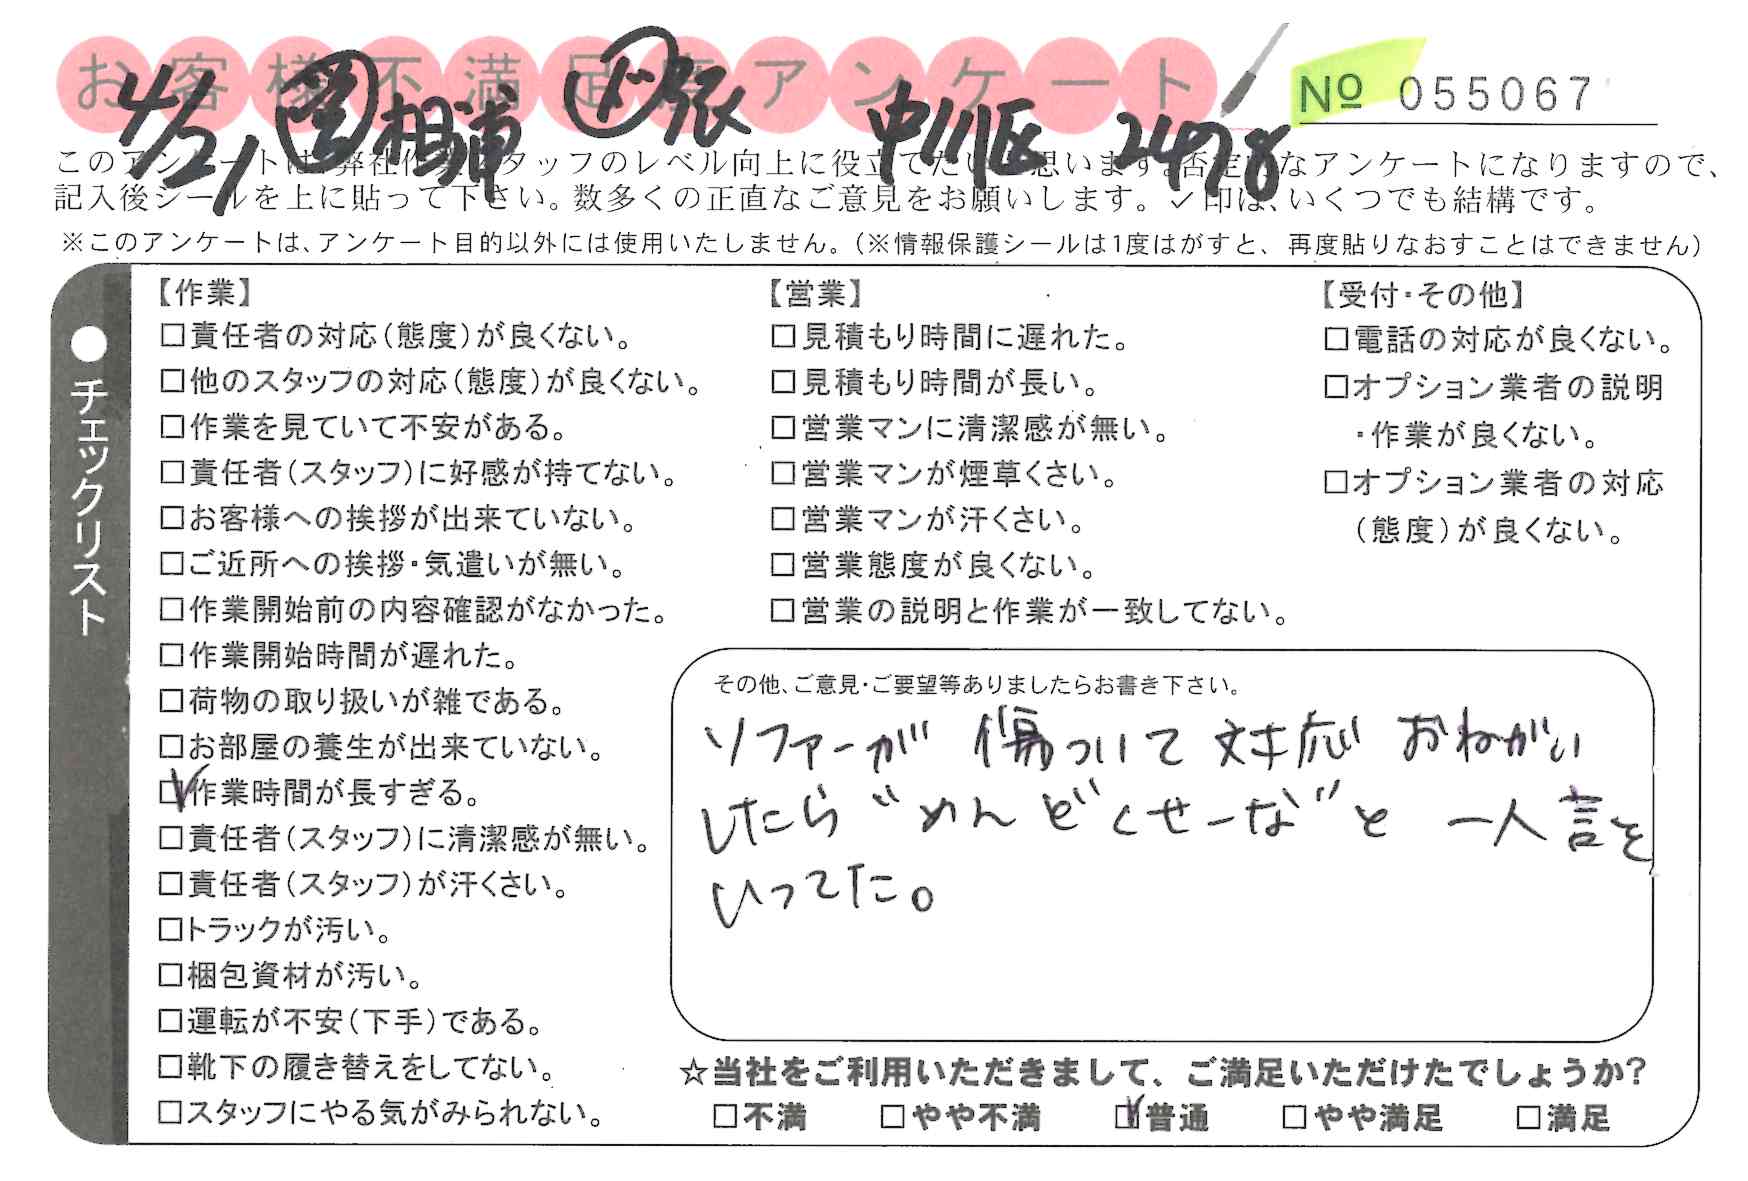 お客様不満足度アンケート
No 055067
4/21 相浦 中川区 2478
このアンケートは、弊社作業スタッフのレベル向上に役立てたいと思います。否定的なアンケートになりますので、
記入後シールを上に貼って下さい。数多くの正直なご意見をお願いします。✓印は、いくつでも結構です。
※このアンケートは、アンケート目的以外には使用いたしません。(※情報保護シールは1度はがすと、再度貼りなおすことはできません)
●チェックリスト
【作業】
□責任者の対応(態度)が良くない。
□他のスタッフの対応(態度)が良くない。
□作業を見ていて不安がある。
□責任者(スタッフ)に好感が持てない。
□お客様への挨拶が出来ていない。
□ご近所への挨拶・気遣いが無い。
□作業開始前の内容確認がなかった。
□作業開始時間が遅れた。
□荷物の取り扱いが雑である。
□お部屋の養生が出来ていない。
☑作業時間が長すぎる。
□責任者(スタッフ)に清潔感が無い。
□責任者(スタッフ)が汗くさい。
□トラックが汚い。
□梱包資材が汚い。
□運転が不安(下手)である。
□靴下の履き替えをしてない。
□スタッフにやる気がみられない。
【営業】
□見積もり時間に遅れた。
□見積もり時間が長い。
□営業マンに清潔感が無い。
□営業マンが煙草くさい。
□営業マンが汗くさい。
□営業態度が良くない。
□営業の説明と作業が一致してない。
【受付・その他】
□電話の対応が良くない。
□オプション業者の説明
・作業が良くない。
□オプション業者の対応
(態度)が良くない。
その他、ご意見・ご要望等ありましたらお書き下さい。
ソファーが 傷ついて 対応 おねがい
したら“めんどくせーな”と 一人言を
いってた。
☆当社をご利用いただきまして、ご満足いただけたでしょうか?
□不満 □やや不満 ☑普通 □やや満足 □満足